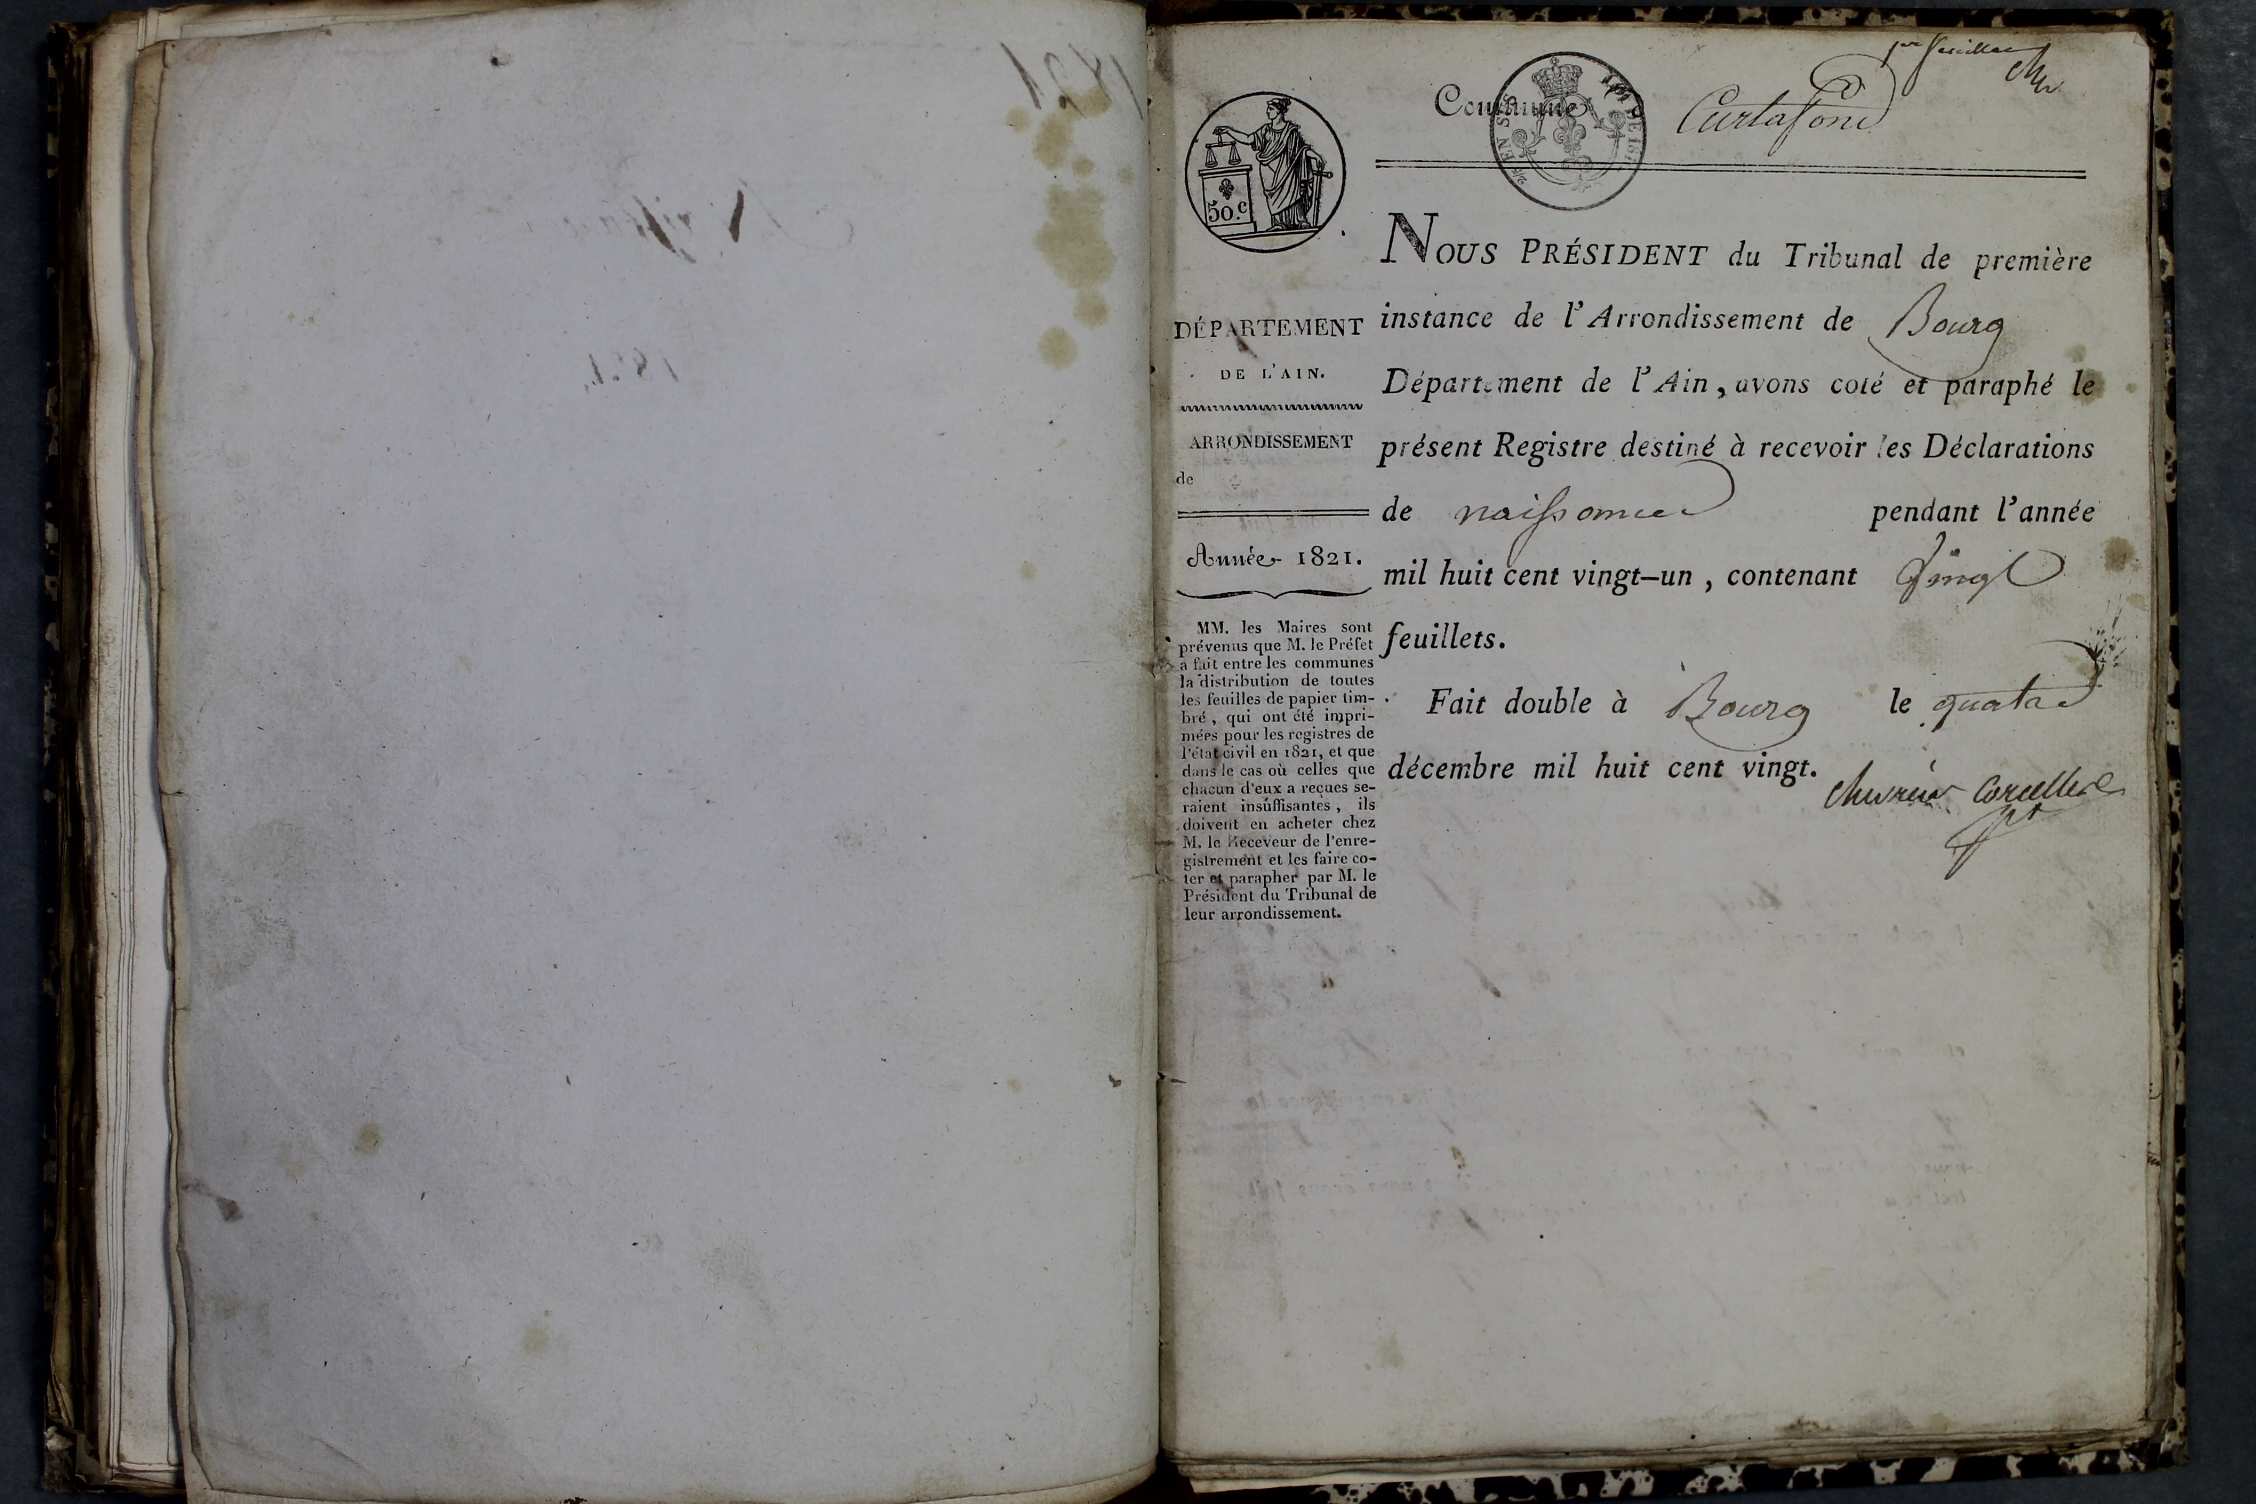 1er feuillet
Commune de Curtafond
50.c
NOUS PRÉSIDENT du Tribunal de première
instance de l'Arrondissement de Bourg
Département de l'Ain, avons coté et paraphé le
présent Registre destiné à recevoir les Déclarations
de naissance pendant l'année
mil huit cent vingt-un, contenant vingt
feuillets.
Fait double à Bourg le quatre
décembre mil huit cent vingt.
DÉPARTEMENT
DE L'AIN.
ARRONDISSEMENT
de
Année 1821.
MM. les Maires sont
prévenus que M. le Préfet
a fait entre les communes
la distribution de toutes
les feuilles de papier tim-
bré, qui ont été impri-
mées pour les registres de
l'état civil en 1821, et que
dans le cas où celles que
chacun d'eux a reçues se-
raient insuffisantes, ils
doivent en acheter chez
M. le Receveur de l'enre-
gistrement et les faire co-
ter et parapher par M. le
Président du Tribunal de
leur arrondissement.